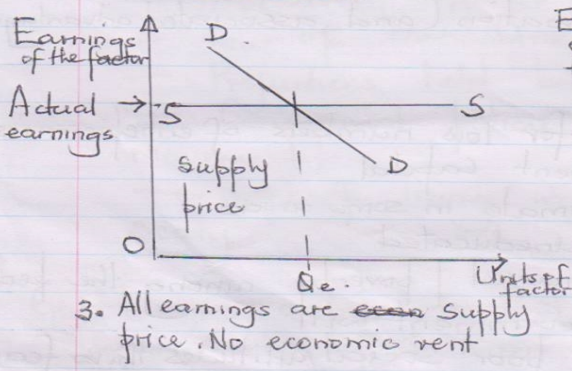 Earnings
of the factor
D
E
Actual
earnings
S
S
D
supply
price
O
Qe.
Units of
factor
3. All earnings are supply
price. No economic rent